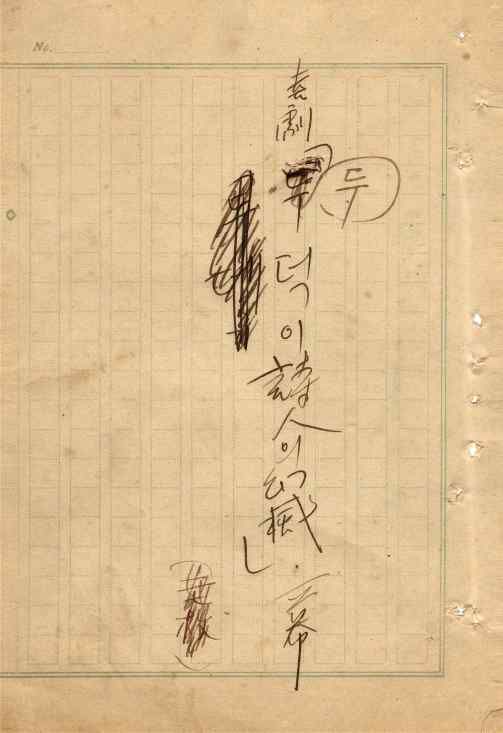 No.
喜劇 「두덕이詩人의幻滅」 一幕